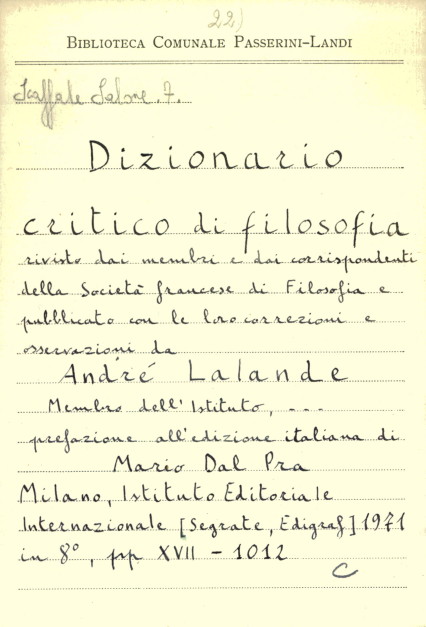 22)
BIBLIOTECA COMUNALE PASSERINI-LANDI
Scaffale Salone. 7.
Dizionario
critico di filosofia
rivisto dai membri e dai corrispondenti
della Società francese di Filosofia e
pubblicato con le loro correzioni e
osservazioni da
André Lalande
Membro dell'Istituto, ...
prefazione all'edizione italiana di
Mario Dal Pra
Milano, Istituto Editoriale
Internazionale [Segrate, Edigraf] 1971
in 8°, pp XVII - 1012
C